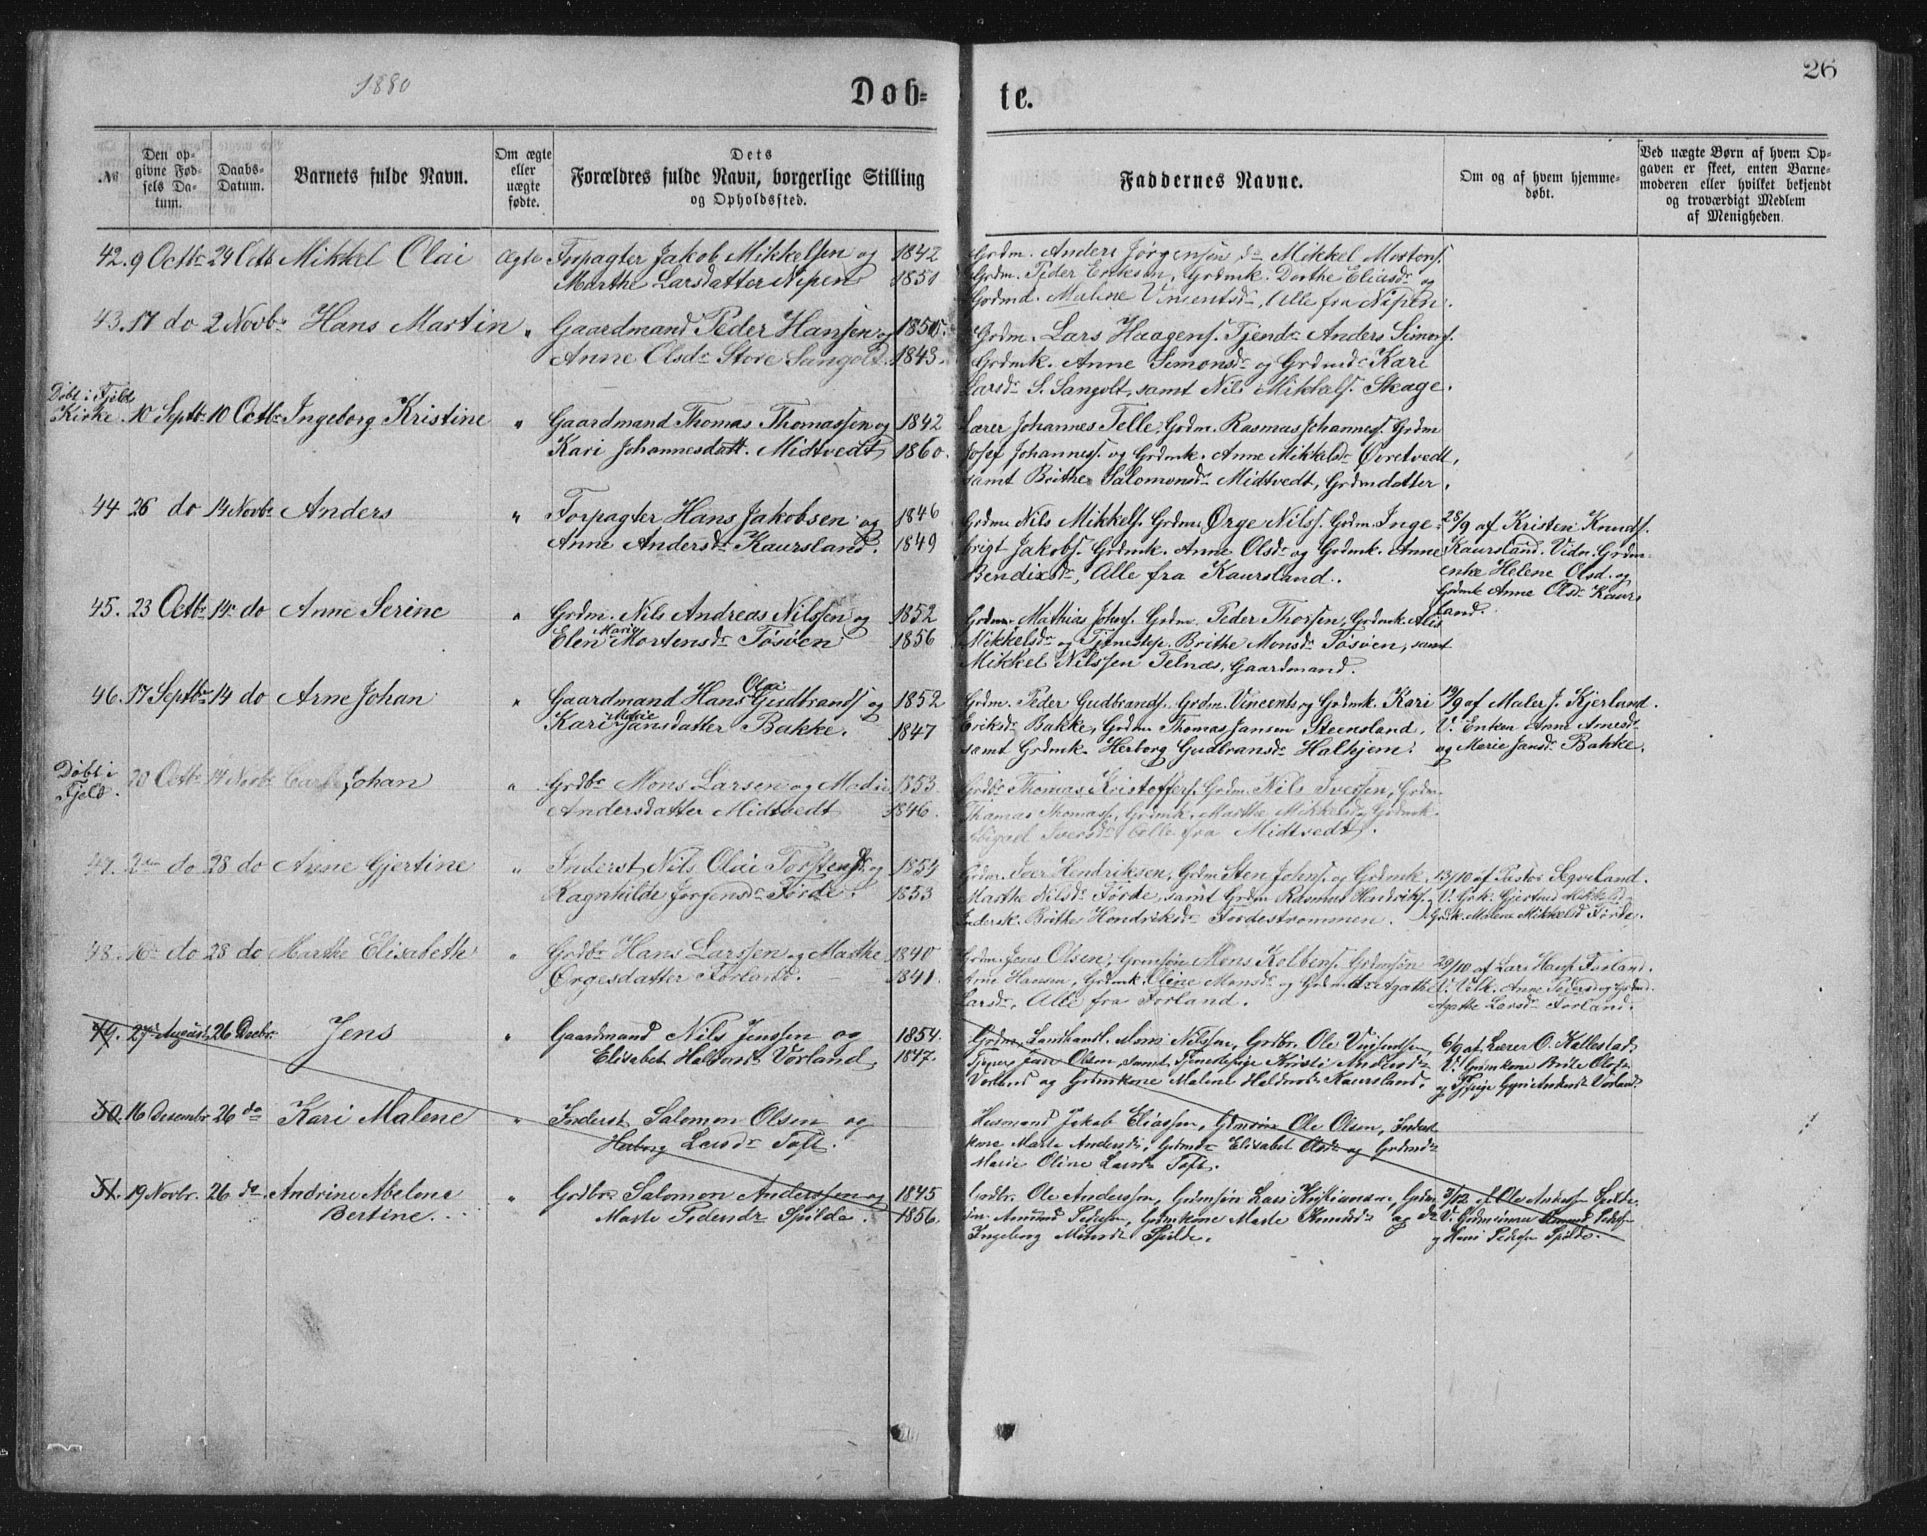 1880
26
Døb=
te.
№
Den op-
givne Fød-
sels Da-
tum.
Daabs-
Datum.
Barnets fulde Navn.
Om ægte
eller
uægte
fødte.
Dets
Forældres fulde Navn, borgerlige Stilling
og Opholdssted.
Faddernes Navne.
Om og af hvem hjemme-
døbt.
Ved uægte Børn af hvem Op-
gaven er skeet, enten Barne-
moderen eller hvilket bekjendt
og troværdigt Medlem
af Menigheden.
42. 9 Octbr 24 Octb Mikkel Olai Ægte Forpagter Jakob Mikkelsen og 1842
Marthe Larsdatter Nipen 1851
Grdm. Anders Jørgensen do Mikkel Mortens.
Grdm. Peder Eriksen, Grdmk. Dorthe Eliasdr og
Grdmd. Malene Vincentsdr, Alle fra Nipen.
43. 17 do 2 Novbr Hans Martin " Gaardmand Peder Hansen og 1850
Anne Olsdr Store Sangolt. 1843.
Grdm. Lars Haagens. Tjendr Anders Simons.
Grdmk. Anne Simonsdr og Grdmdr Kari
Larsdr S. Sangolt, samt Nils Mikkels. Skage.
Døbt i Fjeld
Kirke. 10 Septbr 10 Octbr Ingeborg Kristine " Gaardmand Thomas Thomassen og 1842
Kari Johannesdatt. Midtvedt 1860.
Lærer Johannes Telle, Grdm. Rasmus Johanness. Grdm
Josef Johanness. og Grdmk. Anne Mikkelsdr Øvretvedt,
samt Brithe Salomonsdr Midtvedt, Grdmdatter.
44 26 do 14 Novbr Anders " Forpagter Hans Jakobsen og 1846
Anne Andersdr Kaursland. 1849
Grdm Nils Mikkels. Grdm. Ørge Nilss. Grdm. Inge-
brigt Jakobs. Grdmk. Anne Olsdr og Grdmk. Anne
Bendixdr, Alle fra Kaursland.
28/9 af Kristen Knuds.
Kaursland. Vidn. Grdm-
enke Helene Olsd. og
Grdmk Anne Olsdr Kaurs
land.
45. 23 Octbr 14 do Anne Serine " Grdm. Nils Andreas Nilssen og 1852
Elen Marie Mortensdr Tøsøen 1856
Grdm. Mathias Johns. Grdm. Peder Thorsen, Grdmk. Alis
Mikkelsdr og Tjenestep. Brithe Monsdr Tøsøen, samt
Mikkel Nilssen Telnæs, Gaardmand.
46. 17 Septbr 14 do Arne Johan " Gaardmand Hans Olai Gudbrands. og 1852
Kari Marie Jansdatter Bakke. 1847
Grdm. Peder Gudbrands. Grdm. Vincents og Grdmk. Kari
Eriksdr Bakke, Grdm Thomas Jansen Steensland,
samt Grdmk. Herborg Gudbransdr Halhjem.
19/9 af Maler J. Kjerland.
V. Enken Anne Arnesdr
og Marie Jansdr Bakke.
Døbt i
Fjeld. 20 Octbr 14 Novbr Carl Johan " Grdbr Mons Larsen og Madi 1853.
Andersdatter Midtvedt 1846.
Grdb. Thomas Kristoffers. Grdm. Nils Iverssen, Grdm.
Thomas Thomass, Grdmk. Marthe Mikkelsdr Grdmk.
Abigael Iversdr alle fra Midtvedt.
47. 2den do 28 do Anne Gjertine " Inderst Nils Olai Torstens. og 1854
Ragnhilde Jørgensdr Førde. 1853
Grdm. Iver Hendriksen, Grdm Sten Johns. og Grdmk.
Marthe Nilsdr Førde, samt Grdm Rasmus Hendriks. og
Indersk. Brithe Hendriksdr Førdestrømmen.
13/10 af Pastor Segveland.
V. Grk. Gjertrud Mikkelsd
Grk. Malene Mikkelsd Førde.
48. 16 do 28 do Marthe Elisabeth " Grdbr Hans Larssen og Marthe 1840
Ørgesdatter Forland. 1841.
Grdm. Jens Olsen, Grmsøn Mons Kolbens. Grdmsøn
Arne Hansen, Grdmk. Oline Monsdr og Grdmdr Agathe
Larsdr. Alle fra Forland.
29/10 af Lars Hans. Forland.
V. Urk. Anne Pedersd og Grdmd.
Agathe Larsdr Forland.
49. 27 August 26 Decbr. Jens " Gaardmand Nils Jenssen og 1854.
Elisabet Haldorsd Vorland 1847.
Grdm. Landhandl. Mons Nilssen, Grdbr. Ole Vinsentsen,
Olsen, samt Tjenestepige Kristi Andersdr
Vorland og Grdmkone Malene Haldorsdr Kaursland.
6/9 af Lærer O. Kallestad
V. Grdmkone Brite Olsdr
og Tjpige Andersdr Vorland.
50. 16 Desembr 26 do Kari Malene " Inderst Salomon Olsen og
Herborg Larsdr Toft.
Husmand Jakob Eliassen, Grdmsøn Ole Olsen, Inderst
kone Marte Andersdr, Grdmdr Elisabet Olsdr og Grdmdr
Marie Oline Larsdr Toft.
51. 19 Novbr. 26 do Andrine Abelone " Grdbr. Salomon Anderssen og 1845
Bertine. Marte Pedersdr Spilde. 1856.
Grdbr. Ole Anderssen, Grdmsøn Lars Kristiansen, Grdm
søn. Amund Pedersen, Grdmkone Marte Knudsdr og do
Ingeborg Monsdr Spilde.
3/12 af Ole Anderssen Spilde
V. Grdmsønner Amund Peders.
og Hans Pedersen Spilde.